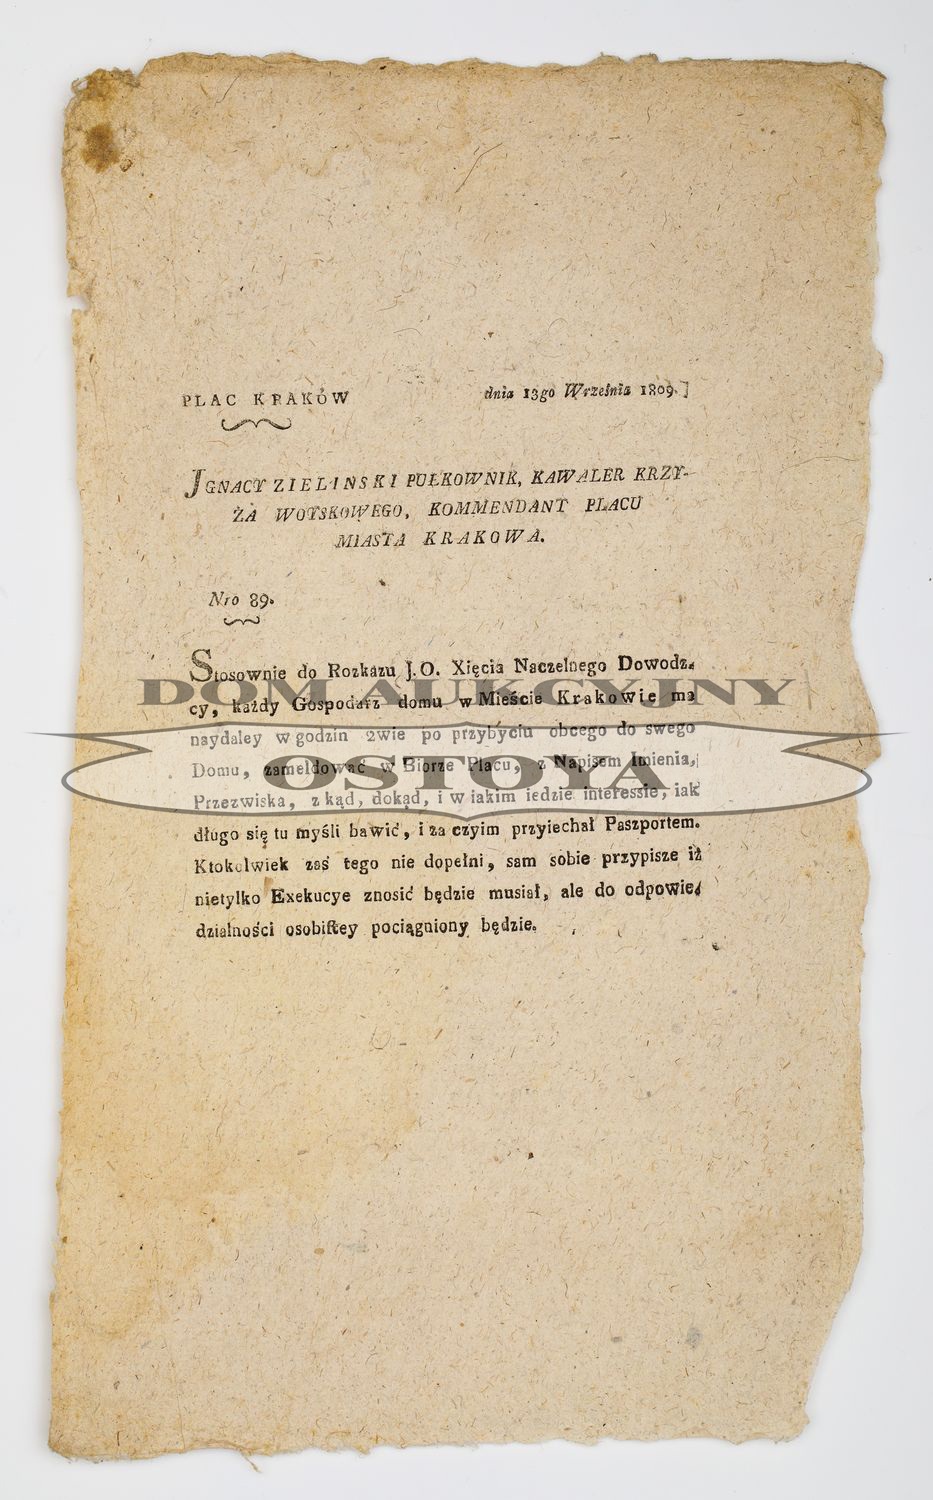 PLAC KRAKÓW dnia 13go Września 1809.]
JGNACY ZIELINSKI PUŁKOWNIK, KAWALER KRZY-
ŻA WOYSKOWEGO, KOMMENDANT PLACU
MIASTA KRAKOWA.
Nro 89.
Stosownie do Rozkazu J.O. Xięcia Naczelnego Dowodz-
cy, każdy Gospodarz domu w Mieście Krakowie ma
naydaley w godzin 2wie po przybyciu obcego do swego
Domu, zameldować w Biorze Placu, z Napisem Imienia,
Przezwiska, z kąd, dokąd, i w iakim iedzie interessie, iak
długo się tu myśli bawić, i za czyim przyiechał Paszportem.
Ktokolwiek zaś tego nie dopełni, sam sobie przypisze iż
nietylko Exekucye znosić będzie musiał, ale do odpowie-
dzialności osobistey pociągniony będzie.
DOM AUKCYJNY
OSTOYA